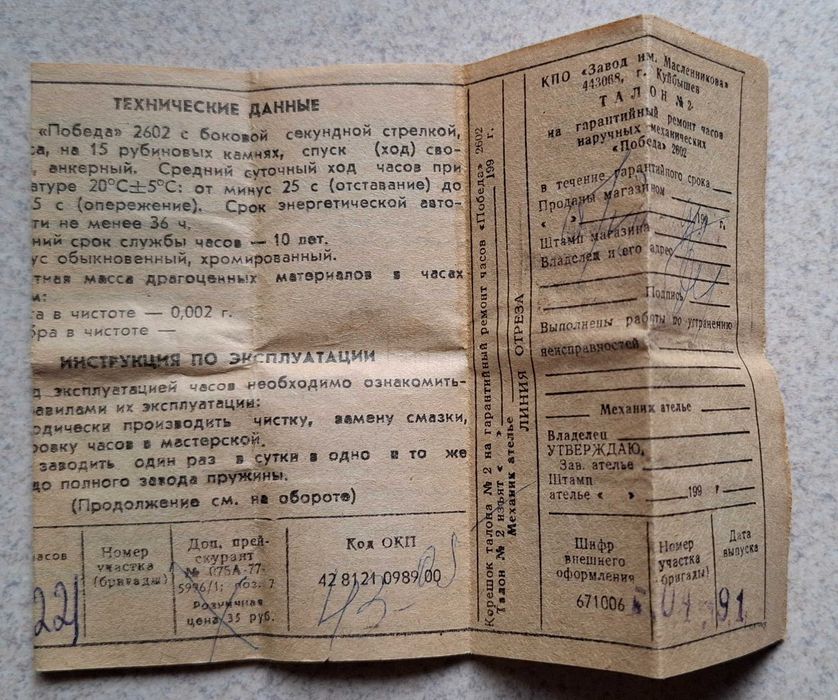 ТЕХНИЧЕСКИЕ ДАННЫЕ
«Победа» 2602 с боковой секундной стрелкой,
са, на 15 рубиновых камнях, спуск (ход) сво-
, анкерный. Средний суточный ход часов при
атуре 20°С±5°С: от минус 25 с (отставание) до
5 с (опережение). Срок энергетической авто-
ти не менее 36 ч.
ний срок службы часов — 10 лет.
ус обыкновенный, хромированный.
тная масса драгоценных материалов в часах
м:
та в чистоте — 0,002 г.
бра в чистоте —
ИНСТРУКЦИЯ ПО ЭКСПЛУАТАЦИИ
д эксплуатацией часов необходимо ознакомить-
авилами их эксплуатации:
одически производить чистку, замену смазки,
ровку часов в мастерской.
заводить один раз в сутки в одно и то же
до полного завода пружины.
(Продолжение см. на обороте)
часов
221
Номер
участка
(бригады)
Доп. прей-
скурант
№ 075А-77-
5996/1; поз. 7
Розничная
цена 35 руб.
Код ОКП
42 8121 0989 00
43-05
Корешок талона № 2 на гарантийный ремонт часов «Победа» 2602
Талон № 2 изъят « » 199 г.
Механик ателье
ЛИНИЯ ОТРЕЗА
КПО «Завод им. Масленникова»
443068, г. Куйбышев
ТАЛОН № 2
на гарантийный ремонт часов
наручных механических
«Победа» 2602
в течение гарантийного срока
Проданы магазином
« » 199 г.
Штамп магазина
Владелец и его адрес
Подпись
Выполнены работы по устранению
неисправностей
Механик ателье
Владелец
УТВЕРЖДАЮ,
Зав. ателье
Штамп
ателье « » 199 г
Шифр
внешнего
оформления
671006
Номер
участка
бригады)
Дата
выпуска
04 91